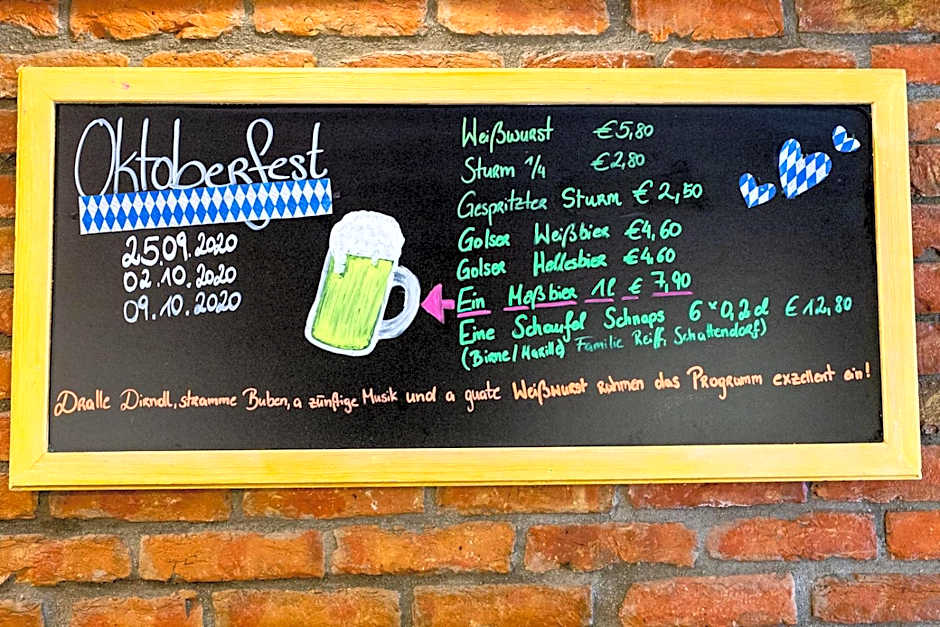 Oktoberfest
25.09.2020
02.10.2020
09.10.2020
Weißwurst €5,80
Sturm 1/4 €2,80
Gespritzter Sturm €2,50
Golser Weißbier €4,60
Golser Hellesbier €4,60
Ein Maßbier 1l € 7,90
Eine Schaufel Schnaps 6*0,2cl €12,80
(Birne/Marille) Familie Reiff, Schattendorf)
Dralle Dirndl, stramme Buben, a zünftige Musik und a guate Weißwurst rahmen das Programm exzellent ein!